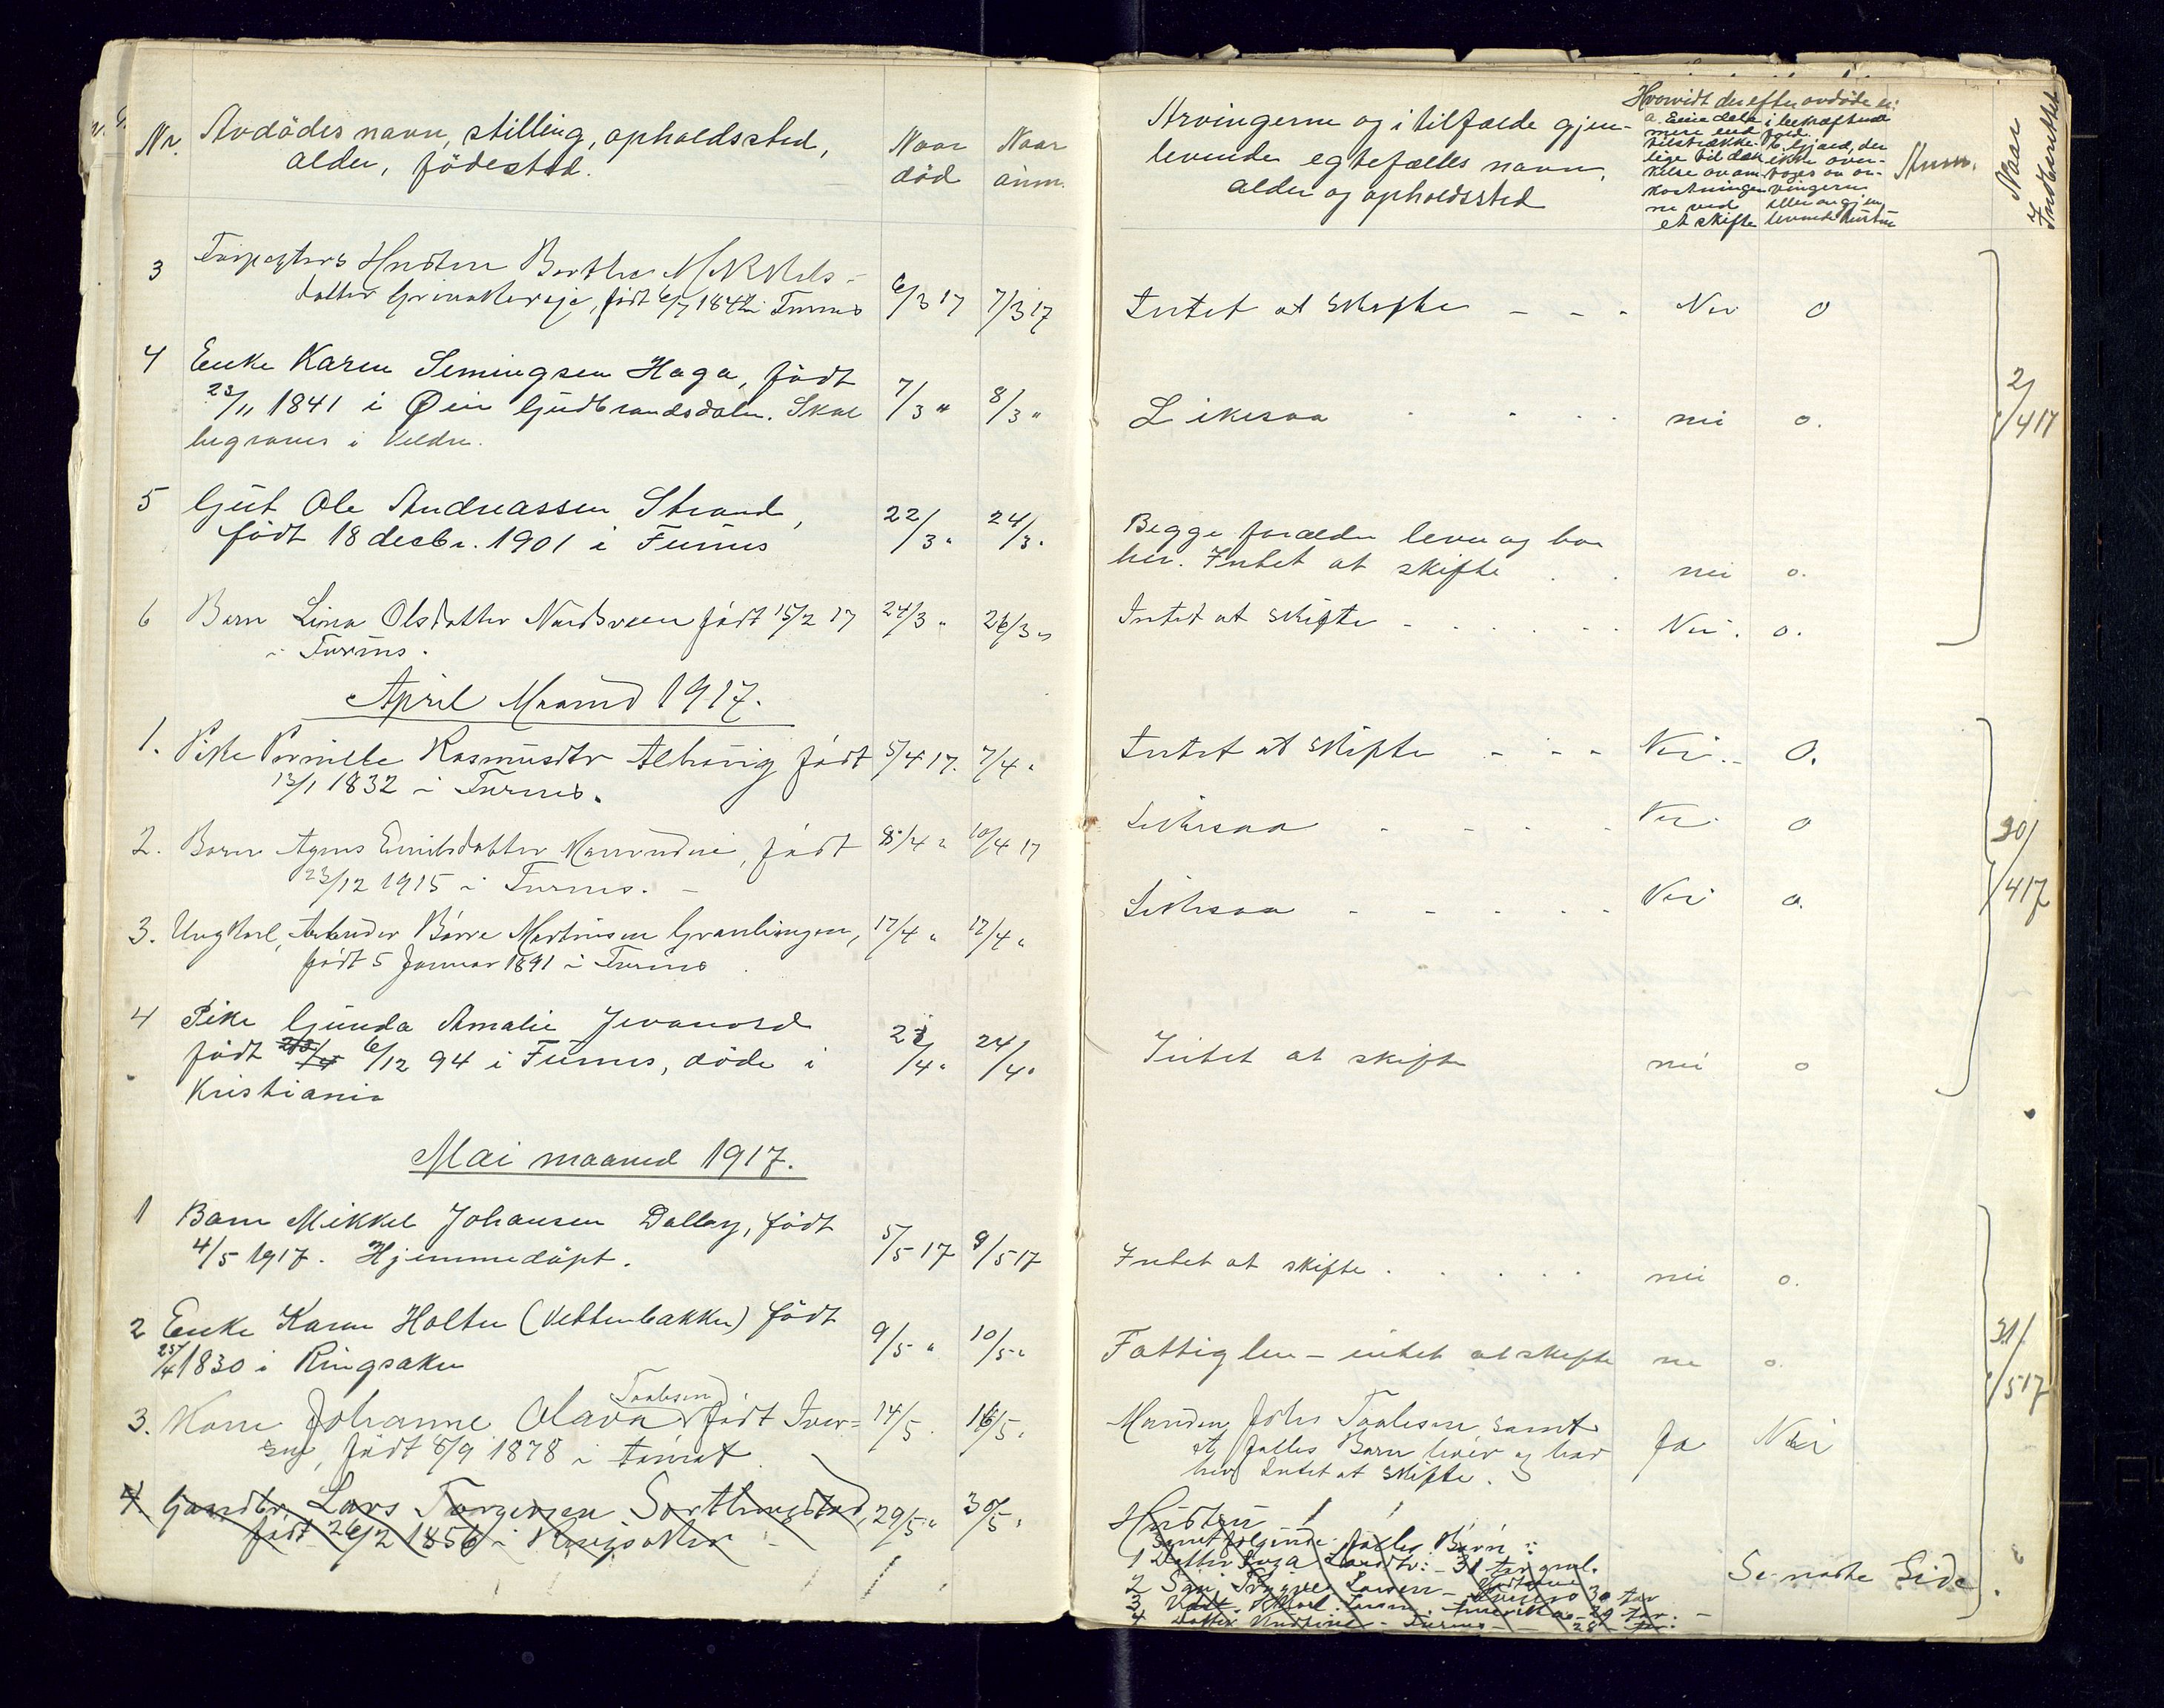 Nr. Avdödes navn, stilling, opholdssted,
alder, födested.
Naar död
Naar anm.
Arvingerne og i tilfælde gjen-
levende egtefælles navn,
alder og opholdssted
Hvorvidt der efter avdöde er:
a. Eiendele i
mere end
tilstrække-
lige til dæk-
kelse av om-
kostningen
ne ved
et skifte
b. Gjæld, der
ikke over-
tages av ar-
vingerne
eller av gjen-
levende
Anm.
Naar
Indberettet
3 Hustru Berthe Mikkels-
datter, født 6/7 1842 i Furnes 6/3 17 7/3 17 Intet at skifte - - - Nei 0
4 Enke Karen Semingsen Haga, født 7/3 " 8/3 "
23/11 1841 i Øier Gudbrandsdalen. Skal Likesaa nei o.
begraves i Veldre.
2/4 17
5 Gut Ole Andreassen Strand, 22/3 " 24/3 "
født 18 decbr. 1901 i Furnes
Begge forældre lever og bor
her. Intet at skifte . . nei o.
6 Barn Lina Olsdatter Nordsveen født 15/2 17 24/3 " 26/3 " Intet at skifte - - - - Nei. o.
i Furnes.
April Maaned 1917.
1. Pike Pernille Rasmusdtr Alhaug født 5/4 17. 7/4 " Intet at skifte - - - Nei.- O.
13/1 1832 i Furnes.
2. Barn Agnes Emilsdatter født 8/4 " 10/4 17 Likesaa - - - - Nei. o
23/12 1915 i Furnes. -
3. Ungkarl, Arbeider Børre Martinsen Granlingen, 17/4 " 17/4 " Likesaa - - - - Nei o.
født 5 Januar 1891 i Furnes
30/4 17
4 Pike Gunda Amalie Jevanord 23/4 " 24/4 "
født 6/12 94 i Furnes, døde i Intet at skifte nei o
Kristiania
Mai maaned 1917.
1 Barn Mikkel Johansen Dalby, født 5/5 17 9/5 17
4/5 1917. Hjemmedøpt. Intet at skifte . . . . . nei o.
2 Enke Karen Holter (Vettenbakken) født 9/5 " 10/5 " Fattiglem - intet at skifte nei o.
25/4 1830 i Ringsaker
31/5 17
3. Kone Johanne Olava Taalesen født Iver- 14/5 . 16/5 . Manden Johs Taalesen samt
sen, født 8/9 1878 i Aamot fælles Barn lever og bor Ja Nei
her Intet at skifte.
4. Gaardbr. Lars Torgersen Sorthungstad, 29/5 " 30/5 " Hustru
født 26/2 1856 i Ringsaker samt følgende fælles Børn:
1 Datter Larsdtr: - 31 aar gml.
2 Søn Larsen - 30 aar
3 Karl Larsen - Amerika - 29 aar. -
4 Datter - Furnes - 28 - aar.
Se næste Side.